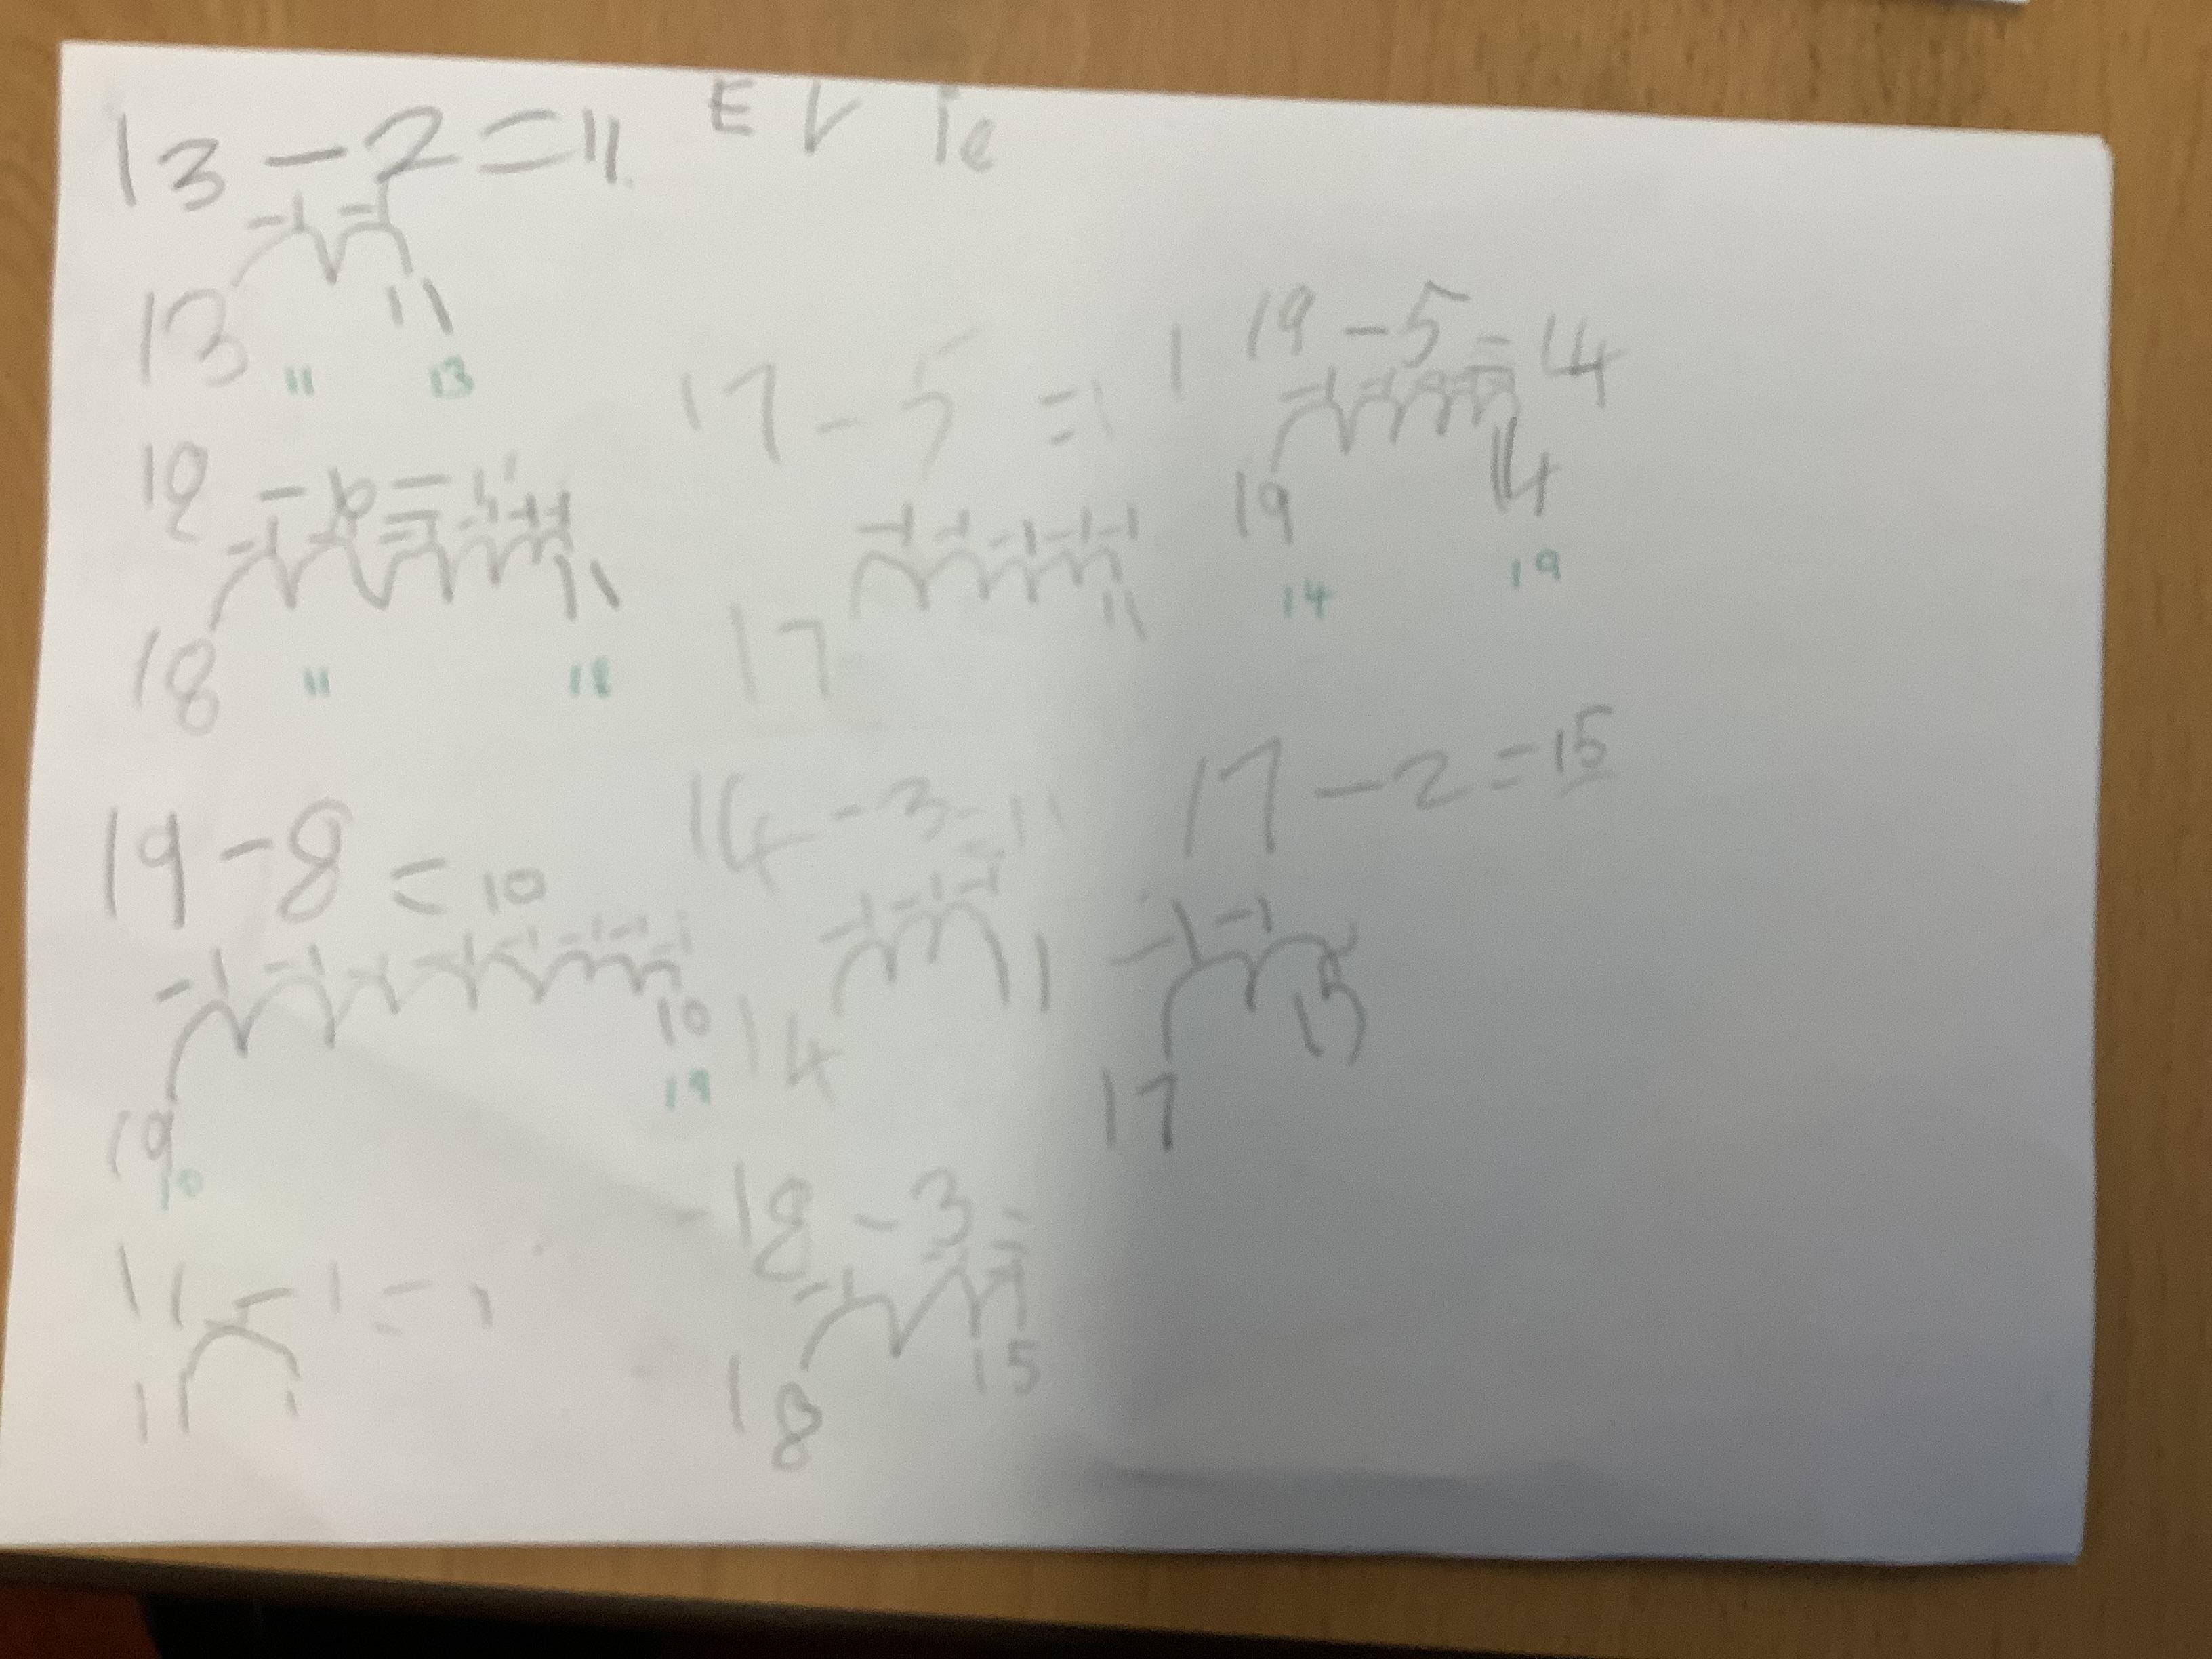 13 - 2 = 11
Evie
-1 -1
13 11
11 13
18 - 6 = 11
-1 -1 -1 -1 -1 -1
18 11
11 18
19 - 8 = 10
-1 -1 -1 -1 -1 -1 -1 -1
19 10
10 19
11 - 1 = 1
11 1
17 - 5 = 11
-1 -1 -1 -1 -1
17 11
14 - 3 = 11
-1 -1 -1
14 11
18 - 3 =
-1 -1 -1
18 15
19 - 5 = 14
19 14
14 19
17 - 2 = 15
-1 -1
17 15